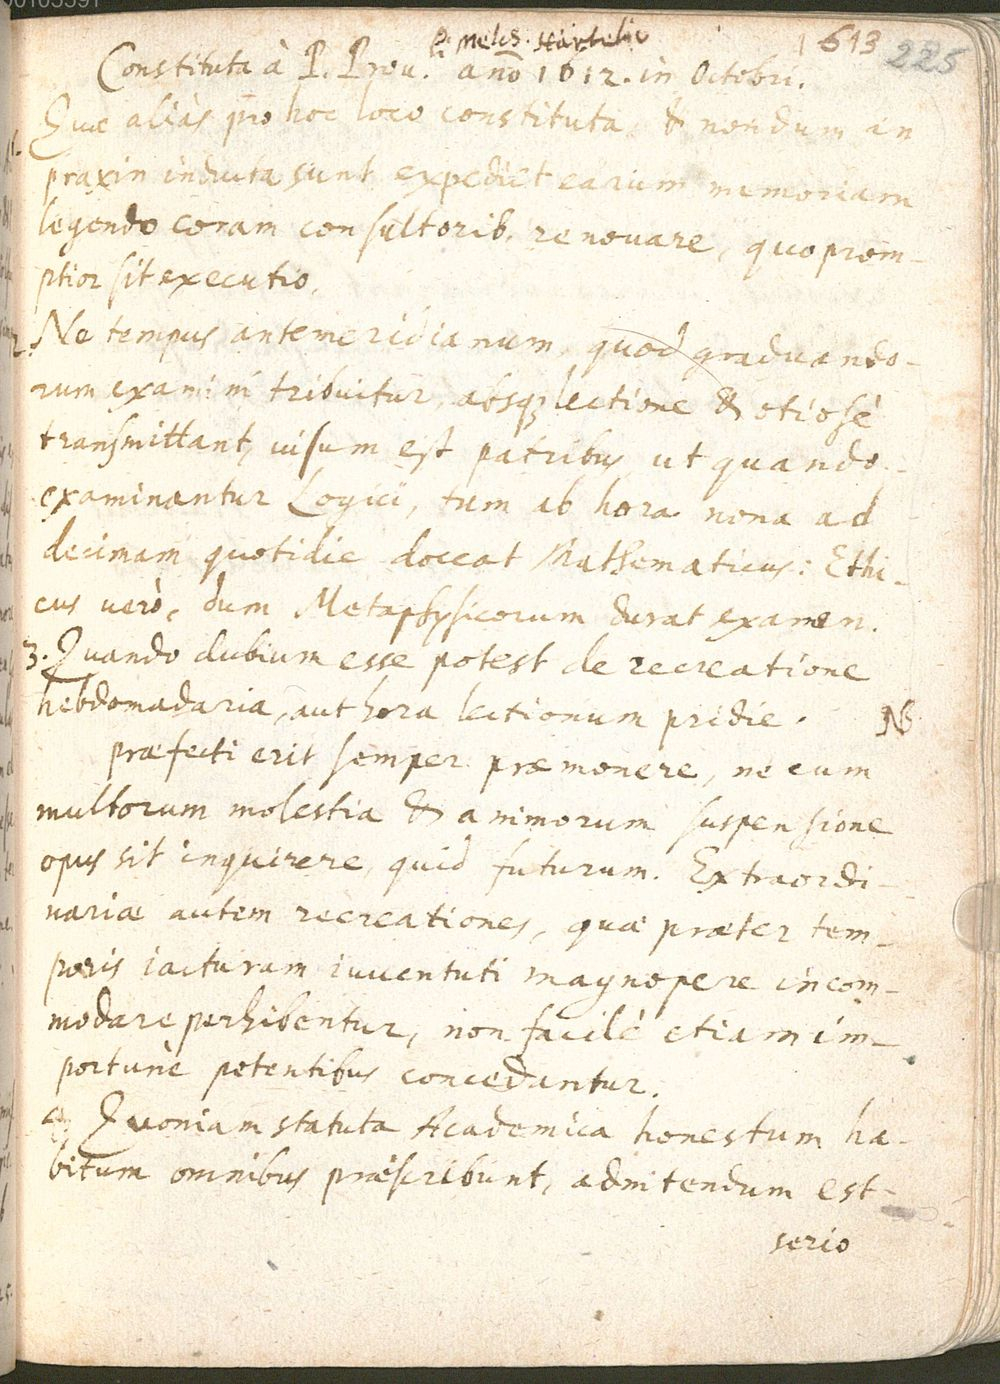 P. Melch. Härtelio
1613 225
Constituta à P. Prou. año 1612. in Octobri.
1. Quæ aliàs pro hoc loco constituta, & nondum in
praxin inducta sunt expediet earum memoriam
legendo coram consultorib. renouare, quo prom-
ptior sit executio.
2. Ne tempus antemeridianum, quod graduando-
rum examini tribuitur, absq; lectione & otiosè
transmittant, uisum est patribus ut quando
examinantur Logici, tum ab hora nona ad
decimam quotidie doceat Mathematicus: Ethi-
cus uerò, dum Metaphysicorum durat examen.
3. Quando dubium esse potest de recreatione
hebdomadaria, aut hora lectionum pridie. NB
præfecti erit semper præmonere, ne cum
multorum molestia & animorum suspensione
opus sit inquirere, quid futurum. Extraordi-
nariæ autem recreationes, quæ præter tem-
poris iacturam iuuentuti magnopere incom-
modare perhibentur, non facilè etiam im-
portunè petentibus concedantur.
4. Quoniam statuta Academica honestum ha-
bitum omnibus præscribunt, adnitendum est
serio